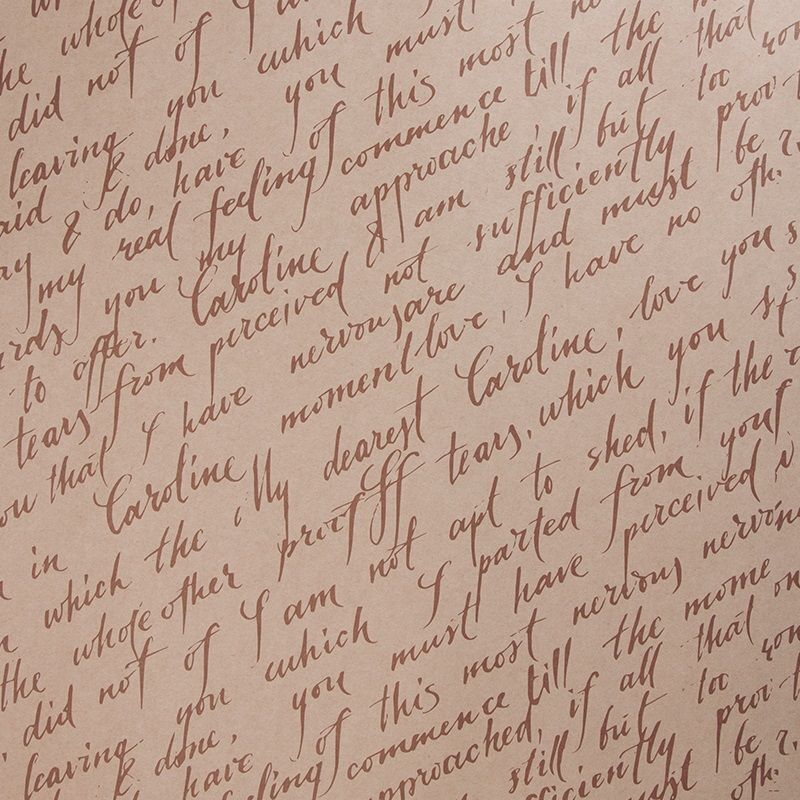 the whole of
did not of I am
leaving you which
said & done, you must
ay & do, have of this most
my real feeling commence till the
rds you my approache, if all that
to offer. Caroline & am still but too
tears from perceived not sufficiently prov
ou that I have nervous are and must be r
in Caroline moment love, I have no oth.
which the My dearest Caroline, love you s
the whole other proof of tears, which you st
did not of I am not apt to shed, if the
leaving you which I parted from you
& done, you must have perceived
have of this most nervous nervous
feeling commence till the mome on
approached, if all that
still but too
ficiently prov
must be r.
oth.